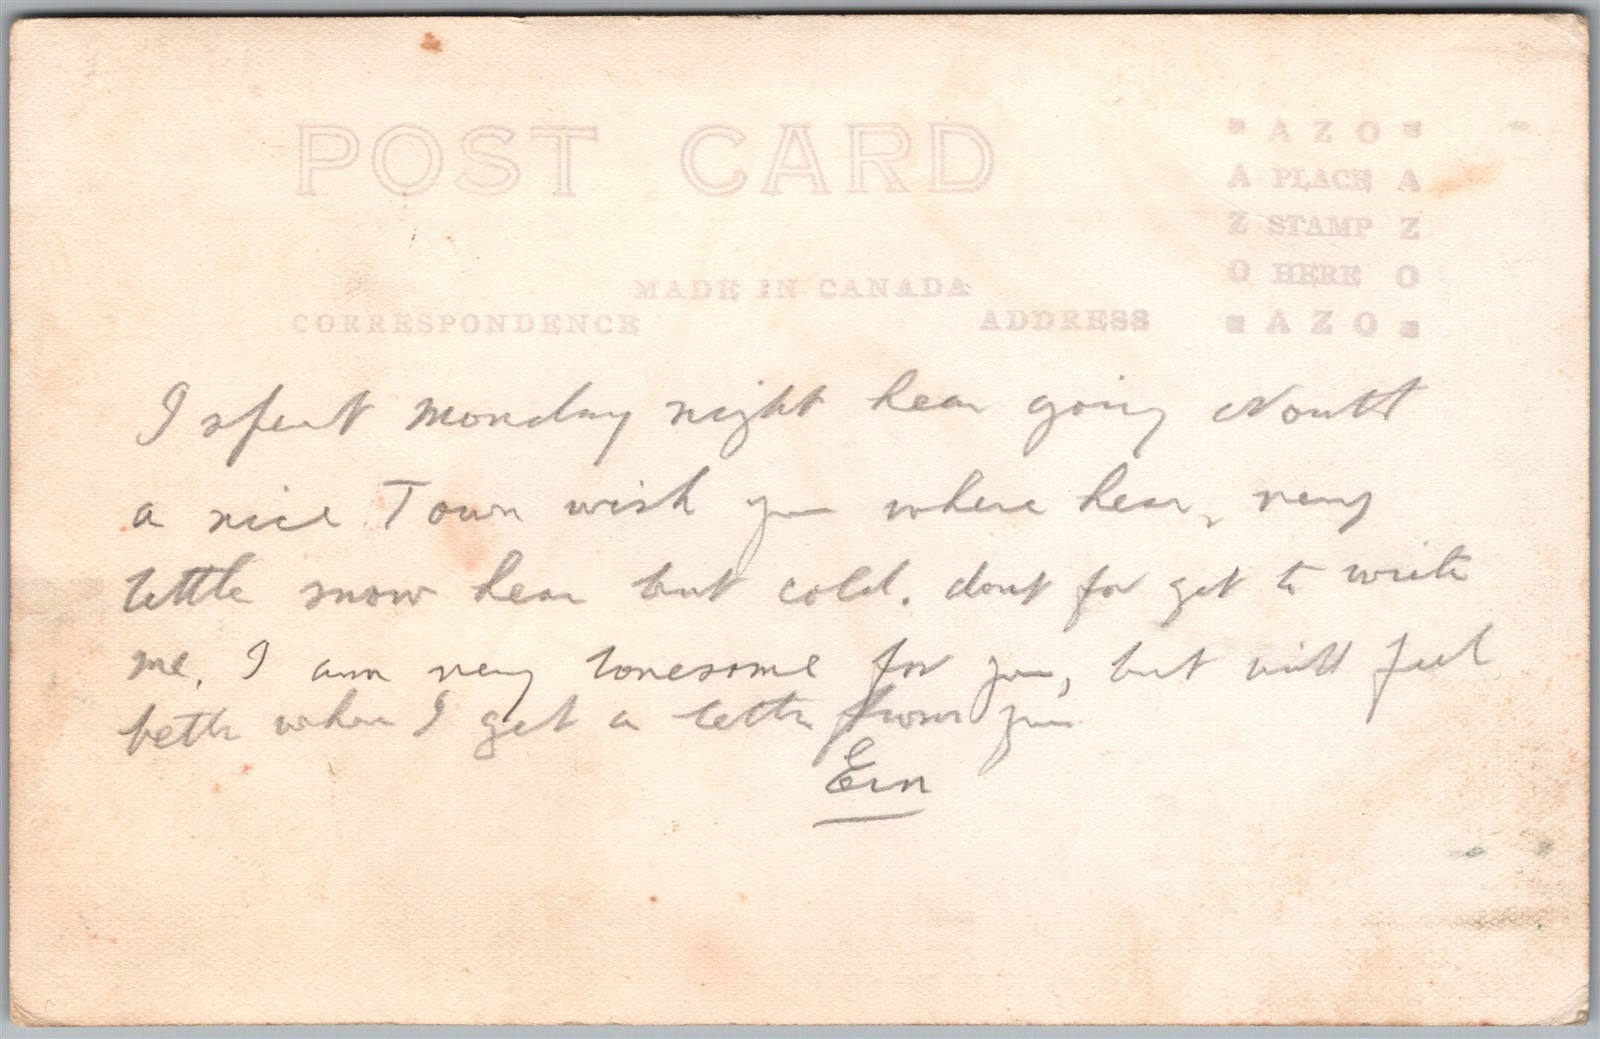 POST CARD
AZO
A PLACE A
Z STAMP Z
O HERE O
AZO
MADE IN CANADA
CORRESPONDENCE ADDRESS
I spent Monday night hear going North
a nice Town wish you where hear, very
little snow hear but cold. dont for get to write
me. I am very lonesome for you, but will feel
bettr when I get a lettr from you